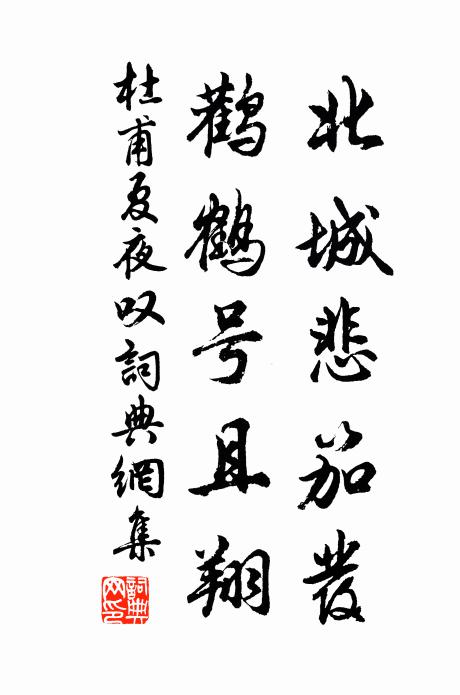 北城悲笳發
鸛鶴号且翔
杜甫夏夜叹詞典網集
詞典網印